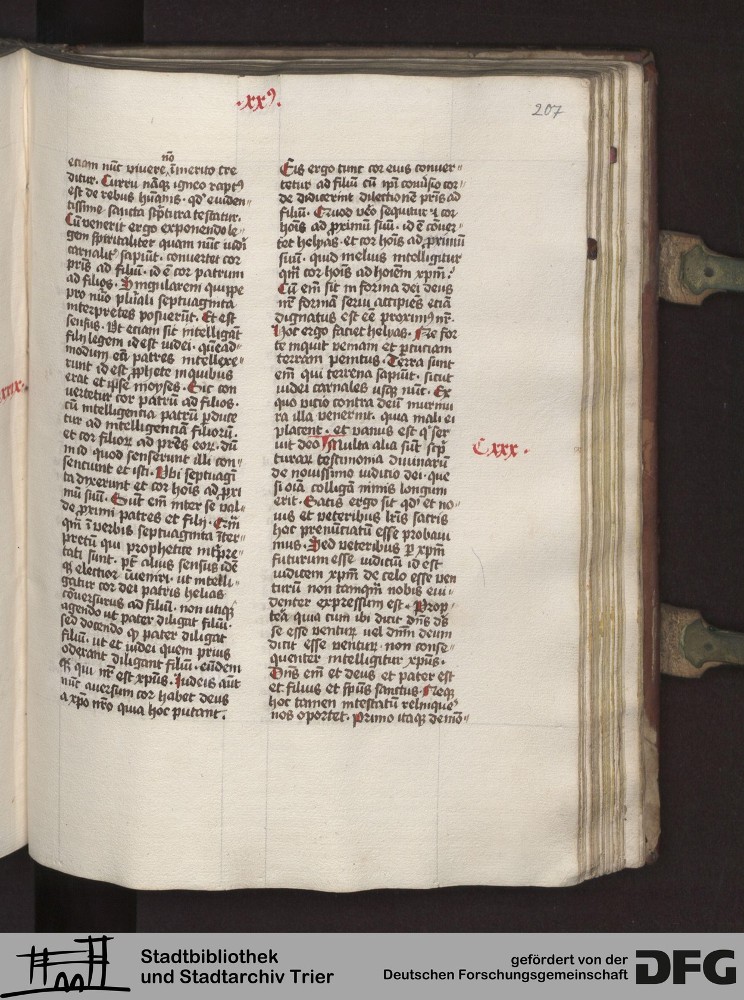 ·xxꝰ·
207
nō
etiam nūc vivere, īmerito cre
ditur. Curru nāqꝫ igneo raptꝰ
est de rebus hūanis. qd' euiden-
tissime sancta sc̄ptura testatur.
Cū venerit ergo exponendo le-
gem spiritaliter quam nūc iudei
carnalit' sapiūt. convertet cor
pris ad filiū. id ē cor patrum
ad filios. Singularem quippe
pro nūo plurali septuaginta
interpretes posuerūt. Et est
sensus. Vt etiam sic intelligāt
filij legem id est iudei. quead-
modum eā patres intellexe-
runt id est ꝓphete in quibus
erat et ipse moyses. Sic con
vertetur cor patrū ad filios.
cū intelligentia patrū ꝑduce
tur ad intelligentiā filiorū.
et cor filiorꝫ ad pres eorꝫ. dū
in id quod senserunt illi con-
sentiunt et isti. Vbi septuagī
ta dixerunt et cor hois ad ꝓxi
mū suū. Sunt em̄ inter se val-
de ꝓximi patres et filij. Qm̄
qm̄ ī verbis septuaginta īter-
pretū qui prophetice int̄pre-
tati sunt. pt̄ alius sensus idē
qꝫ electior īuenri. ut intelli-
gatur cor dei patris helias
cōuersurus ad filiū. non utiqꝫ
agendo ut pater diligat filiū.
sed docendo ꝙ pater diligat
filiū. ut et iudei quem prius
oderant diligant filiū. eūdem
qꝫ qui nr̄ est xpūs. Iudeis aūt
nūc aversum cor habet deus
a xpo nr̄o quia hoc putant.
xxix.
Eis ergo tunc cor eius conver-
tetur ad filiū cū ipī conūso cor-
de didicerint dilectionē pris ad
filiū. Quod v̄o sequitur ⁊ cor
hois ad ꝓximū suū. id ē cōver-
tet helyas. et cor hois ad ꝓximū
suū. quid melius intelligitur
qm̄ cor hois ad hoiem xpm̄.
Cū em̄ sit in forma dei deus
nr̄ formā serui accipiēs etiā
dignatus est eē proximꝰ nr̄.
Hoc ergo faciet helyas. Ne for
te inquit veniam et ꝑcutiam
terram penitus. Terra sunt
em̄ qui terrena sapiūt. sicut
iudei carnales usqꝫ nūc. Ex
quo vitio contra deū murmu
ra illa venerūt. quia mali ei
placent. et vanus est qͥ ser
uit deo. Multa alia sūt scp̄
turarꝫ testimonia divinarū
de novissimo iudicio dei. que
si oīa colligā nimis longum
erit. Satis ergo sit qd' et no-
uis et veteribus lr̄is sacris
hoc prenūtiatū esse probavi
mus. Sed veteribus ꝑ xpm̄
futurum esse iudiciū id est
iudicem xpm̄ de celo esse ven
turū non tamqm̄ nobis evi-
denter expressum est. Prop-
tea quia cum ibi dicit dn̄s dꝰ
se esse venturꝫ uel dnm̄ deum
dicit esse venturꝫ. non conse-
quenter intelligitur xpūs.
Dn̄s em̄ et deus et pater est
et filius et sp̄us sanctus. Neqꝫ
hoc tamen intestatū relinquēꝰ
nos oportet. Primo itaqꝫ demō-
C xxx.
Stadtbibliothek
und Stadtarchiv Trier
gefördert von der
Deutschen Forschungsgemeinschaft
DFG